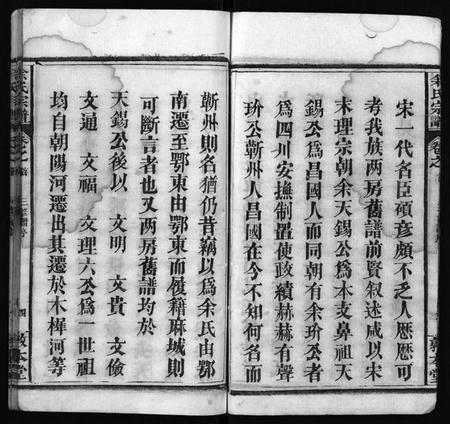 余氏宗譜
卷之
宋一代名臣碩彥頗不乏人歷歷可
考我族两房舊譜前賢叙述咸以宋
末理宗朝余天錫公爲本支鼻祖天
錫公爲昌國人而同朝有余玠公者
爲四川安撫制置使政績赫赫有聲
玠公蘄州人昌國在今不知何名而
敦本堂
蘄州則名猶仍昔竊以爲余氏由鄂
南遷至鄂東由鄂東而復籍麻城則
可斷言者也又两房舊譜均於
天錫公後以 文明 文貴 文儉
文通 文福 文理六公爲一世祖
均自朝陽河遷出其遷於木樨河等
余氏宗譜
卷之 首
敦本堂